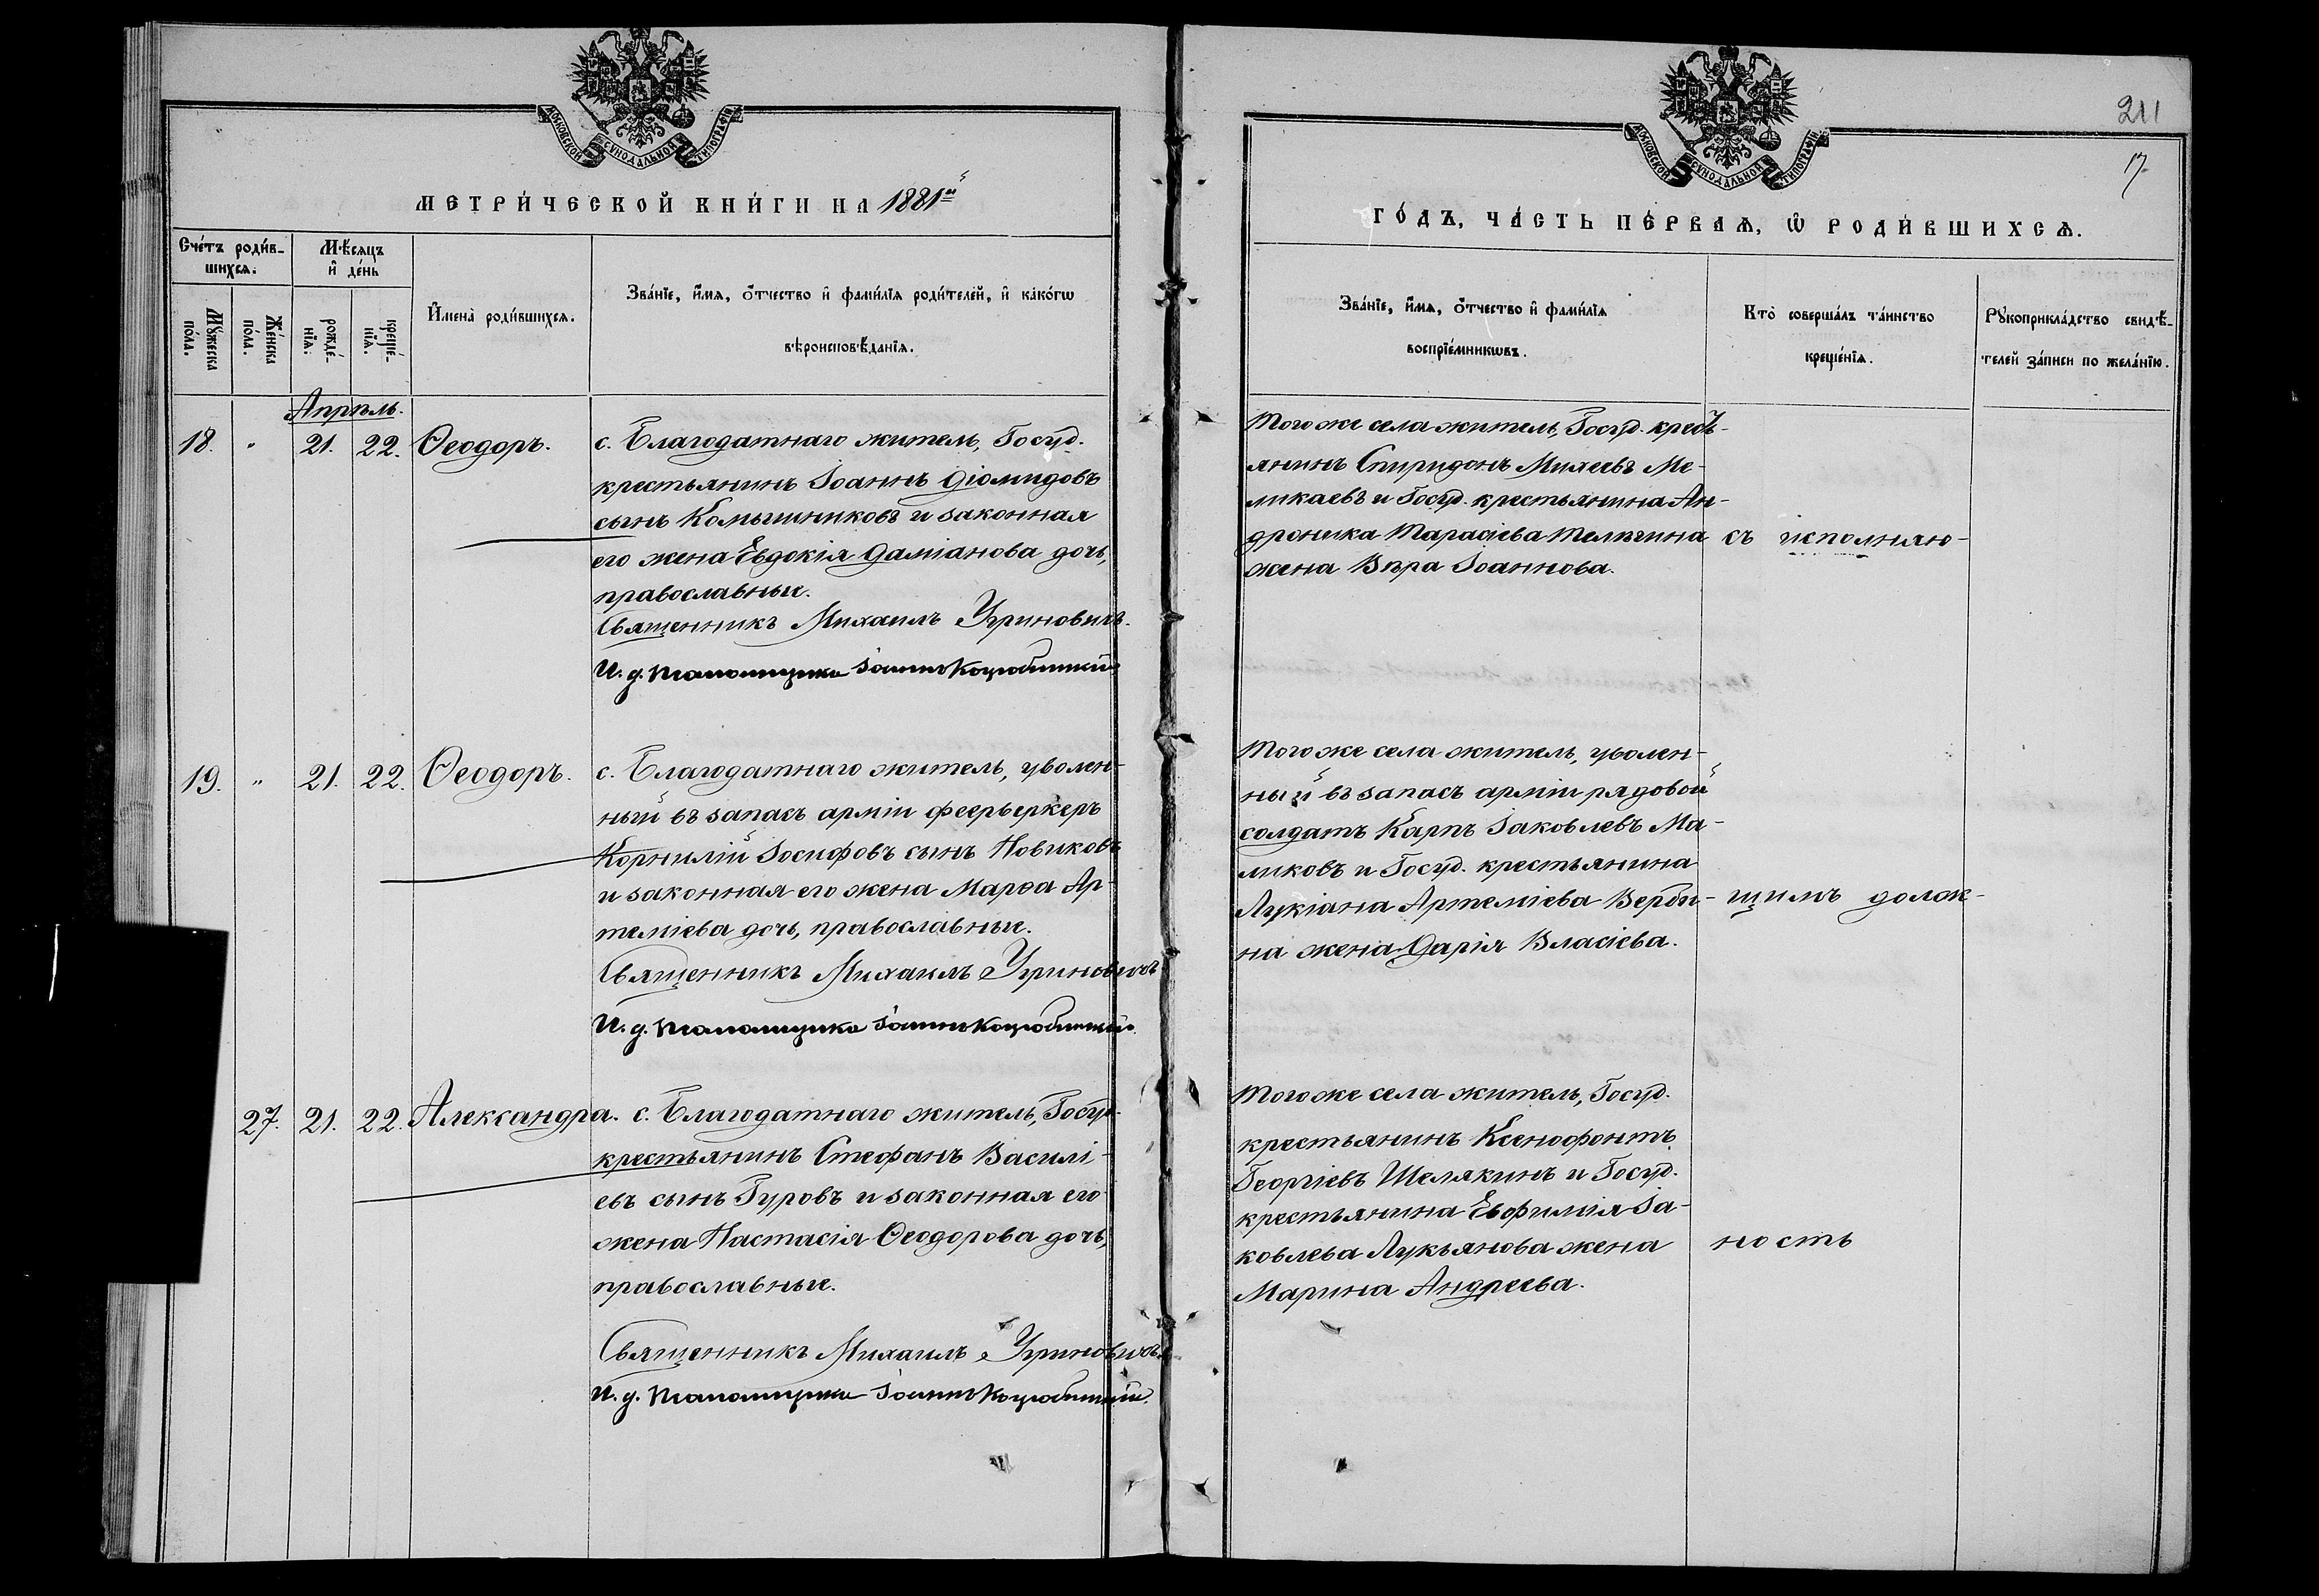 МОСКОВСКОЙ СѴНОДАЛЬНОЙ ТИПОГРАФІИ
МЕТРИ́ЧЕСКОЙ КНИ́ГИ НА 1881й
Сче́тъ роди́в-
шихсѧ.
Мꙋ́жеска
по́ла.
Же́нска
по́ла.
Мѣ́сяцъ
и҆ де́нь
рожде́-
нїѧ.
креще́-
нїѧ.
И҆мена̀ роди́вшихсѧ.
Зва́нїе, и҆́мѧ, ѻ҆́тчество и҆ фами́лїѧ роди́телей, и҆ како́гѡ
вѣроисповѣ́данїѧ.
Апрѣль.
18. " 21. 22. Ѳеодоръ.
с. Благодатнаго житель, Госуд.
крестьянинъ Іоаннъ Діомидовъ
сынъ Комышниковъ и законная
его жена Евдокія Даміанова дочь,
православные.
Священникъ Михаилъ Угриновичъ.
И. д. псаломщика Іоаннъ Коцюбинскій
19. " 21. 22. Ѳеодоръ.
с. Благодатнаго житель, уволен-
ный въ запасъ арміи феерверкеръ
Корнилій Іосифовъ сынъ Новиковъ
и законная его жена Марѳа Ар-
теміева дочь, православные.
Священникъ Михаилъ Угриновичъ
И. д. псаломщика Іоаннъ Коцюбинскій.
27. 21. 22. Александра.
с. Благодатнаго житель, Госуд.
крестьянинъ Стефанъ Василі-
евъ сынъ Гуровъ и законная его
жена Настасія Ѳеодорова дочь,
православные.
Священникъ Михаилъ Угриновичъ.
И. д. псаломщика Іоаннъ Коцюбинскій.
211
17.
МОСКОВСКОЙ СѴНОДАЛЬНОЙ ТИПОГРАФІИ
ГО́ДЪ, ЧА́СТЬ ПЕ́РВАѦ, Ѽ РОДИ́ВШИХСѦ.
Зва́нїе, и҆́мѧ, ѻ҆́тчество и҆ фами́лїѧ
воспрїе́мникѡвъ.
Кто̀ соверша́лъ та́инство
креще́нїѧ.
Рꙋкоприкла́дство свидѣ́-
телей за́писи по жела́нїю.
Того же села житель, Госуд. кресть-
янинъ Спиридонъ Михеевъ Ме-
ликаевъ и Госуд. крестьянина Ан-
дроника Тарасіева Телегина
жена Вѣра Іоаннова.
съ исполняю-
Того же села житель, уволен-
ный въ запасъ арміи рядовой
солдатъ Карпъ Іаковлевъ Ма-
ликовъ и Госуд. крестьянина
Лукіана Артеміева Верби-
на жена Дарія Власіева.
щимъ долж-
Того же села житель, Госуд.
крестьянинъ Ксенофонтъ
Георгіевъ Шелякинъ и Госуд.
крестьянина Евфимія Іа-
ковлева Лукьянова жена
Марина Андреева.
ность